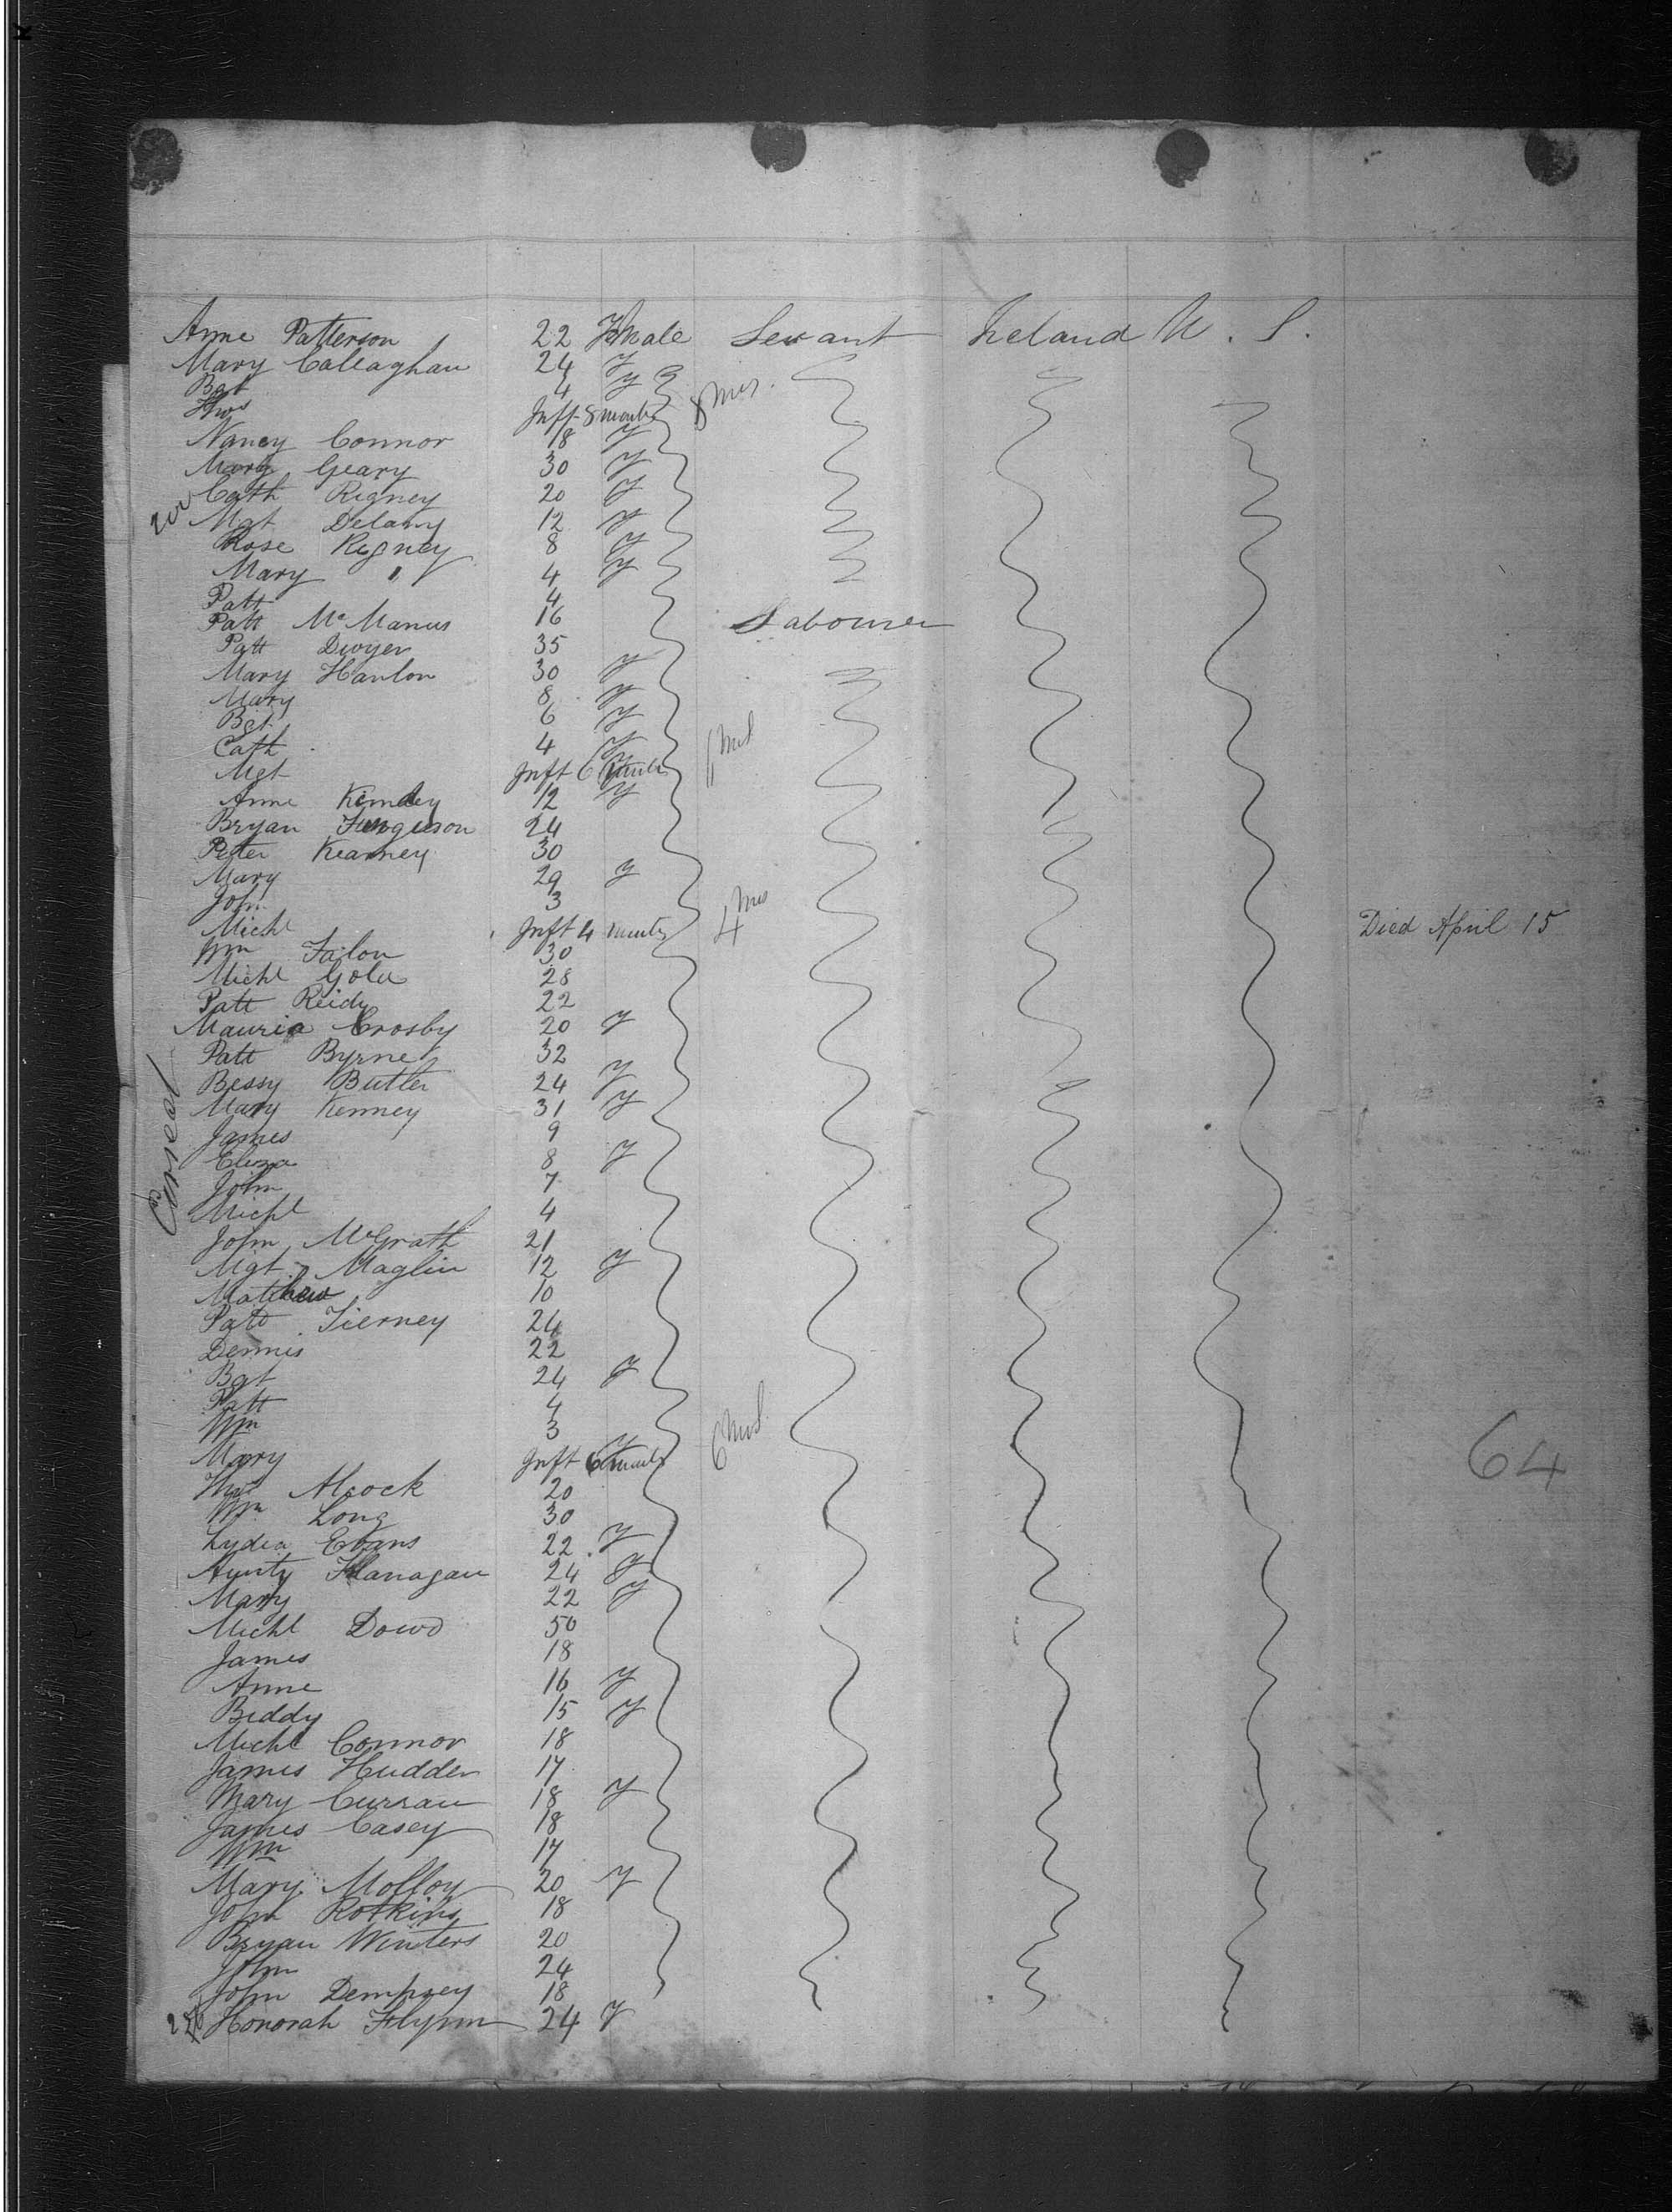 Anne Patterson 22 Female Servant Ireland U. S.
Mary Callaghan 24 F
Bgt 4 F
Thos Inft 8 months 8 mos.
Nancy Connor 18 F
Mary Geary 30 F
200 Cath Rigney 20 F
Mgt Delany 12 F
Rose Rigney 8 F
Mary " 4 F
Patt 4
Patt McManus 16 Labourer
Patt Dwyer 35
Mary Hanlon 30 F
Mary 8 F
Bgt 6 F
Cath 4 F
Mgt Inft 6 months F 6 mos
Anne 12 F
Bryan Furguson 24
Peter Kearney 30
Mary 29 F
John 3
Michl Inft 4 months 4 mos Died April 15
Wm Falon 30
Michl 28
Patt Reidy 22
Mauria Crosby 20 F
Patt Byrne 32
Bessy Butler 24 F
Mary Kenney 31 F
James 9
Eliza 8 F
John 7
Michl 4
John McGrath 21
Mgt Maglin 12 F
Matthew 10
Patt Tierney 24
Dennis 22
Bgt 24 F
Patt 4
Wm 3
Mary Inft 6 months F 6 mos
64
Thos Alcock 20
Wm Long 30
Lydia Evans 22 F
Flanagan 24 F
Mary 22 F
Michl Dowd 50
James 18
Anne 16 F
Biddy 15 F
Michl Connor 18
James Hudden 17
Mary Curran 18 F
James Casey 18
Wm 17
Mary Molloy 20 F
John Rotkins 18
Bryan Winters 20
John 24
John Dempsey 18
Honorah Flynn 24 F